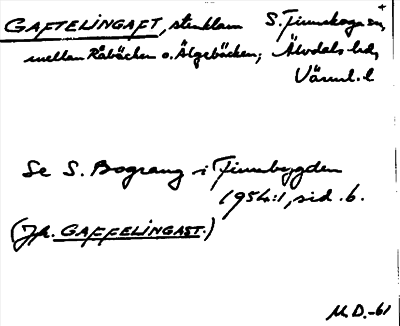 GAFTELINGAFT, stenklam S. Finnskoga sn,
mellan Råbäcken o. Älgebäcken; Älvdals hd,
Värml. l
Se S. Bograng i Finnbygden
1954:1, sid. 6.
(Jfr. GAFFELINGAST.)
M.D.-61